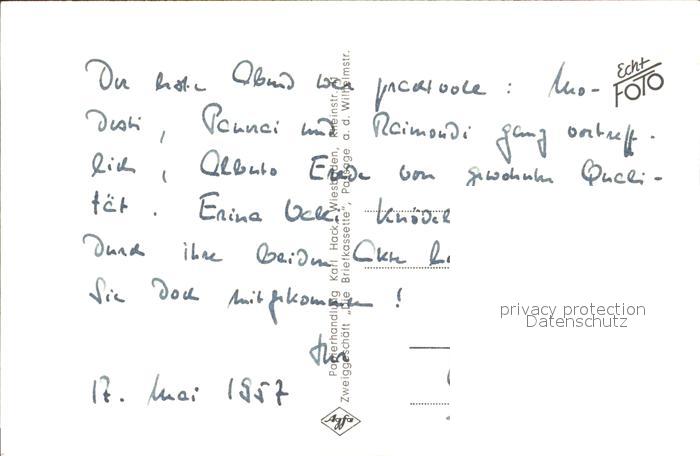 Der erste Abend war prachtvoll : Mo-
desti , Panerai und Raimondi ganz vortreff-
lich , Alberto Erede von gewohnter Quali-
tät . Erina Valli
durch ihre beiden Akte
Sie doch mitgekommen !
Ihr
17. Mai 1957
Echt
FOTO
Papierhandlung Karl Hack, Wiesbaden, Rheinstr.
Zweiggeschäft „Die Briefkassette“, Passage a. d. Wilhelmstr.
Agfa
privacy protection
Datenschutz